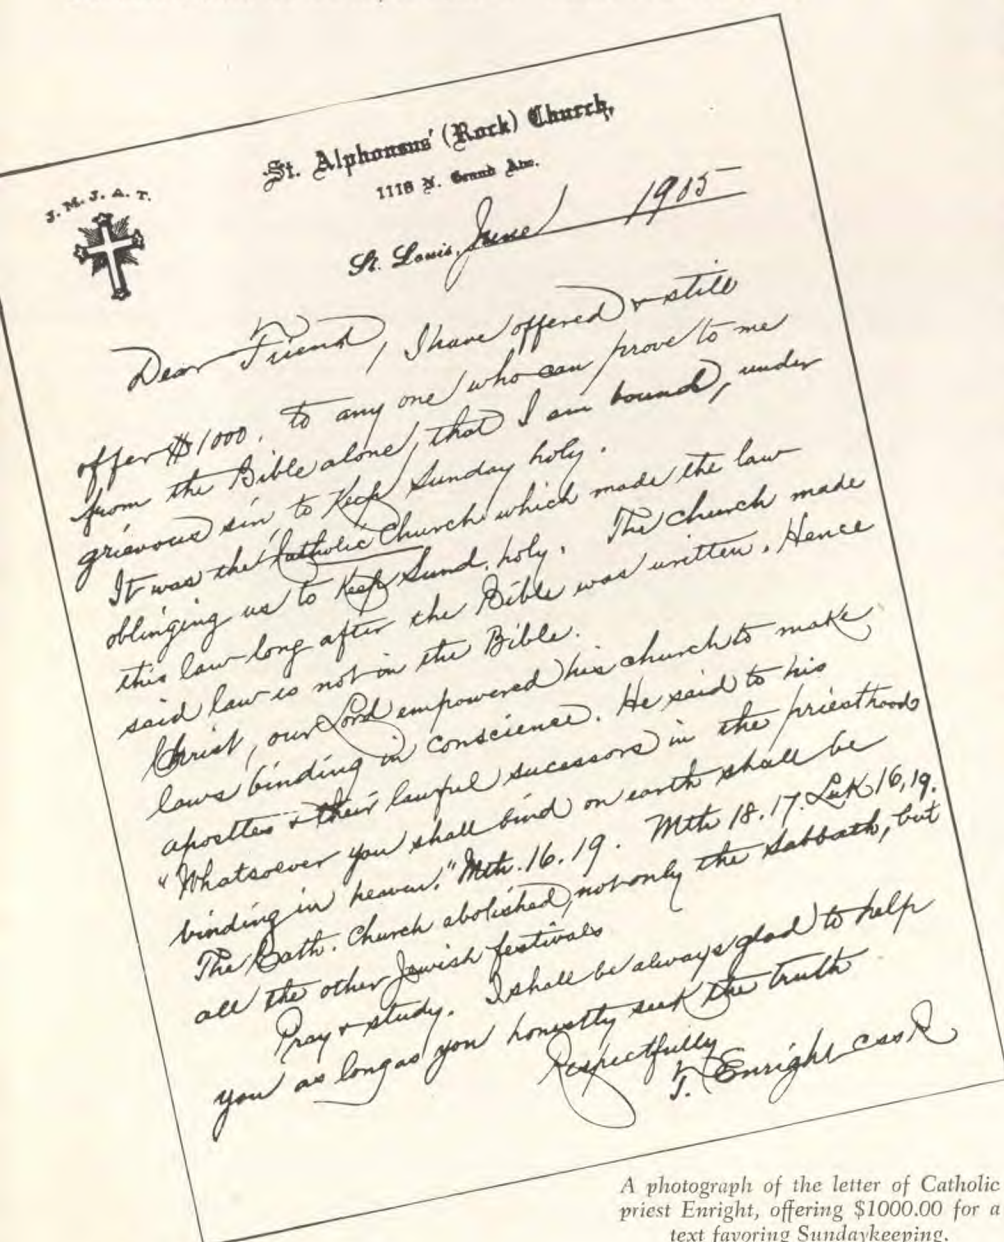 St. Alphonsus' (Rock) Church,
1118 N. Grand Ave.
J. M. J. A. T.
St. Louis, June 1905
Dear Friend, I have offered & still
offer $1000. to any one who can prove to me
from the Bible alone, that I am bound, under
grievous sin to Keep Sunday holy.
It was the Catholic Church which made the law
oblinging us to Keep Sund. holy. The church made
this law long after the Bible was written. Hence
said law is not in the Bible.
Christ, our Lord empowered his church to make
laws binding in conscience. He said to his
apostles & their lawful sucessors in the priesthood
"Whatsoever you shall bind on earth shall be
binding in heaven." Mth. 16. 19. Mth 18. 17. Luk 16, 19.
The Cath. Church abolished, not only the Sabbath, but
all the other Jewish festivals
Pray & study. I shall be always glad to help
you as long as you honestly seek the truth
Respectfully
T. Enright CSSR
A photograph of the letter of Catholic
priest Enright, offering $1000.00 for a
text favoring Sundaykeeping.